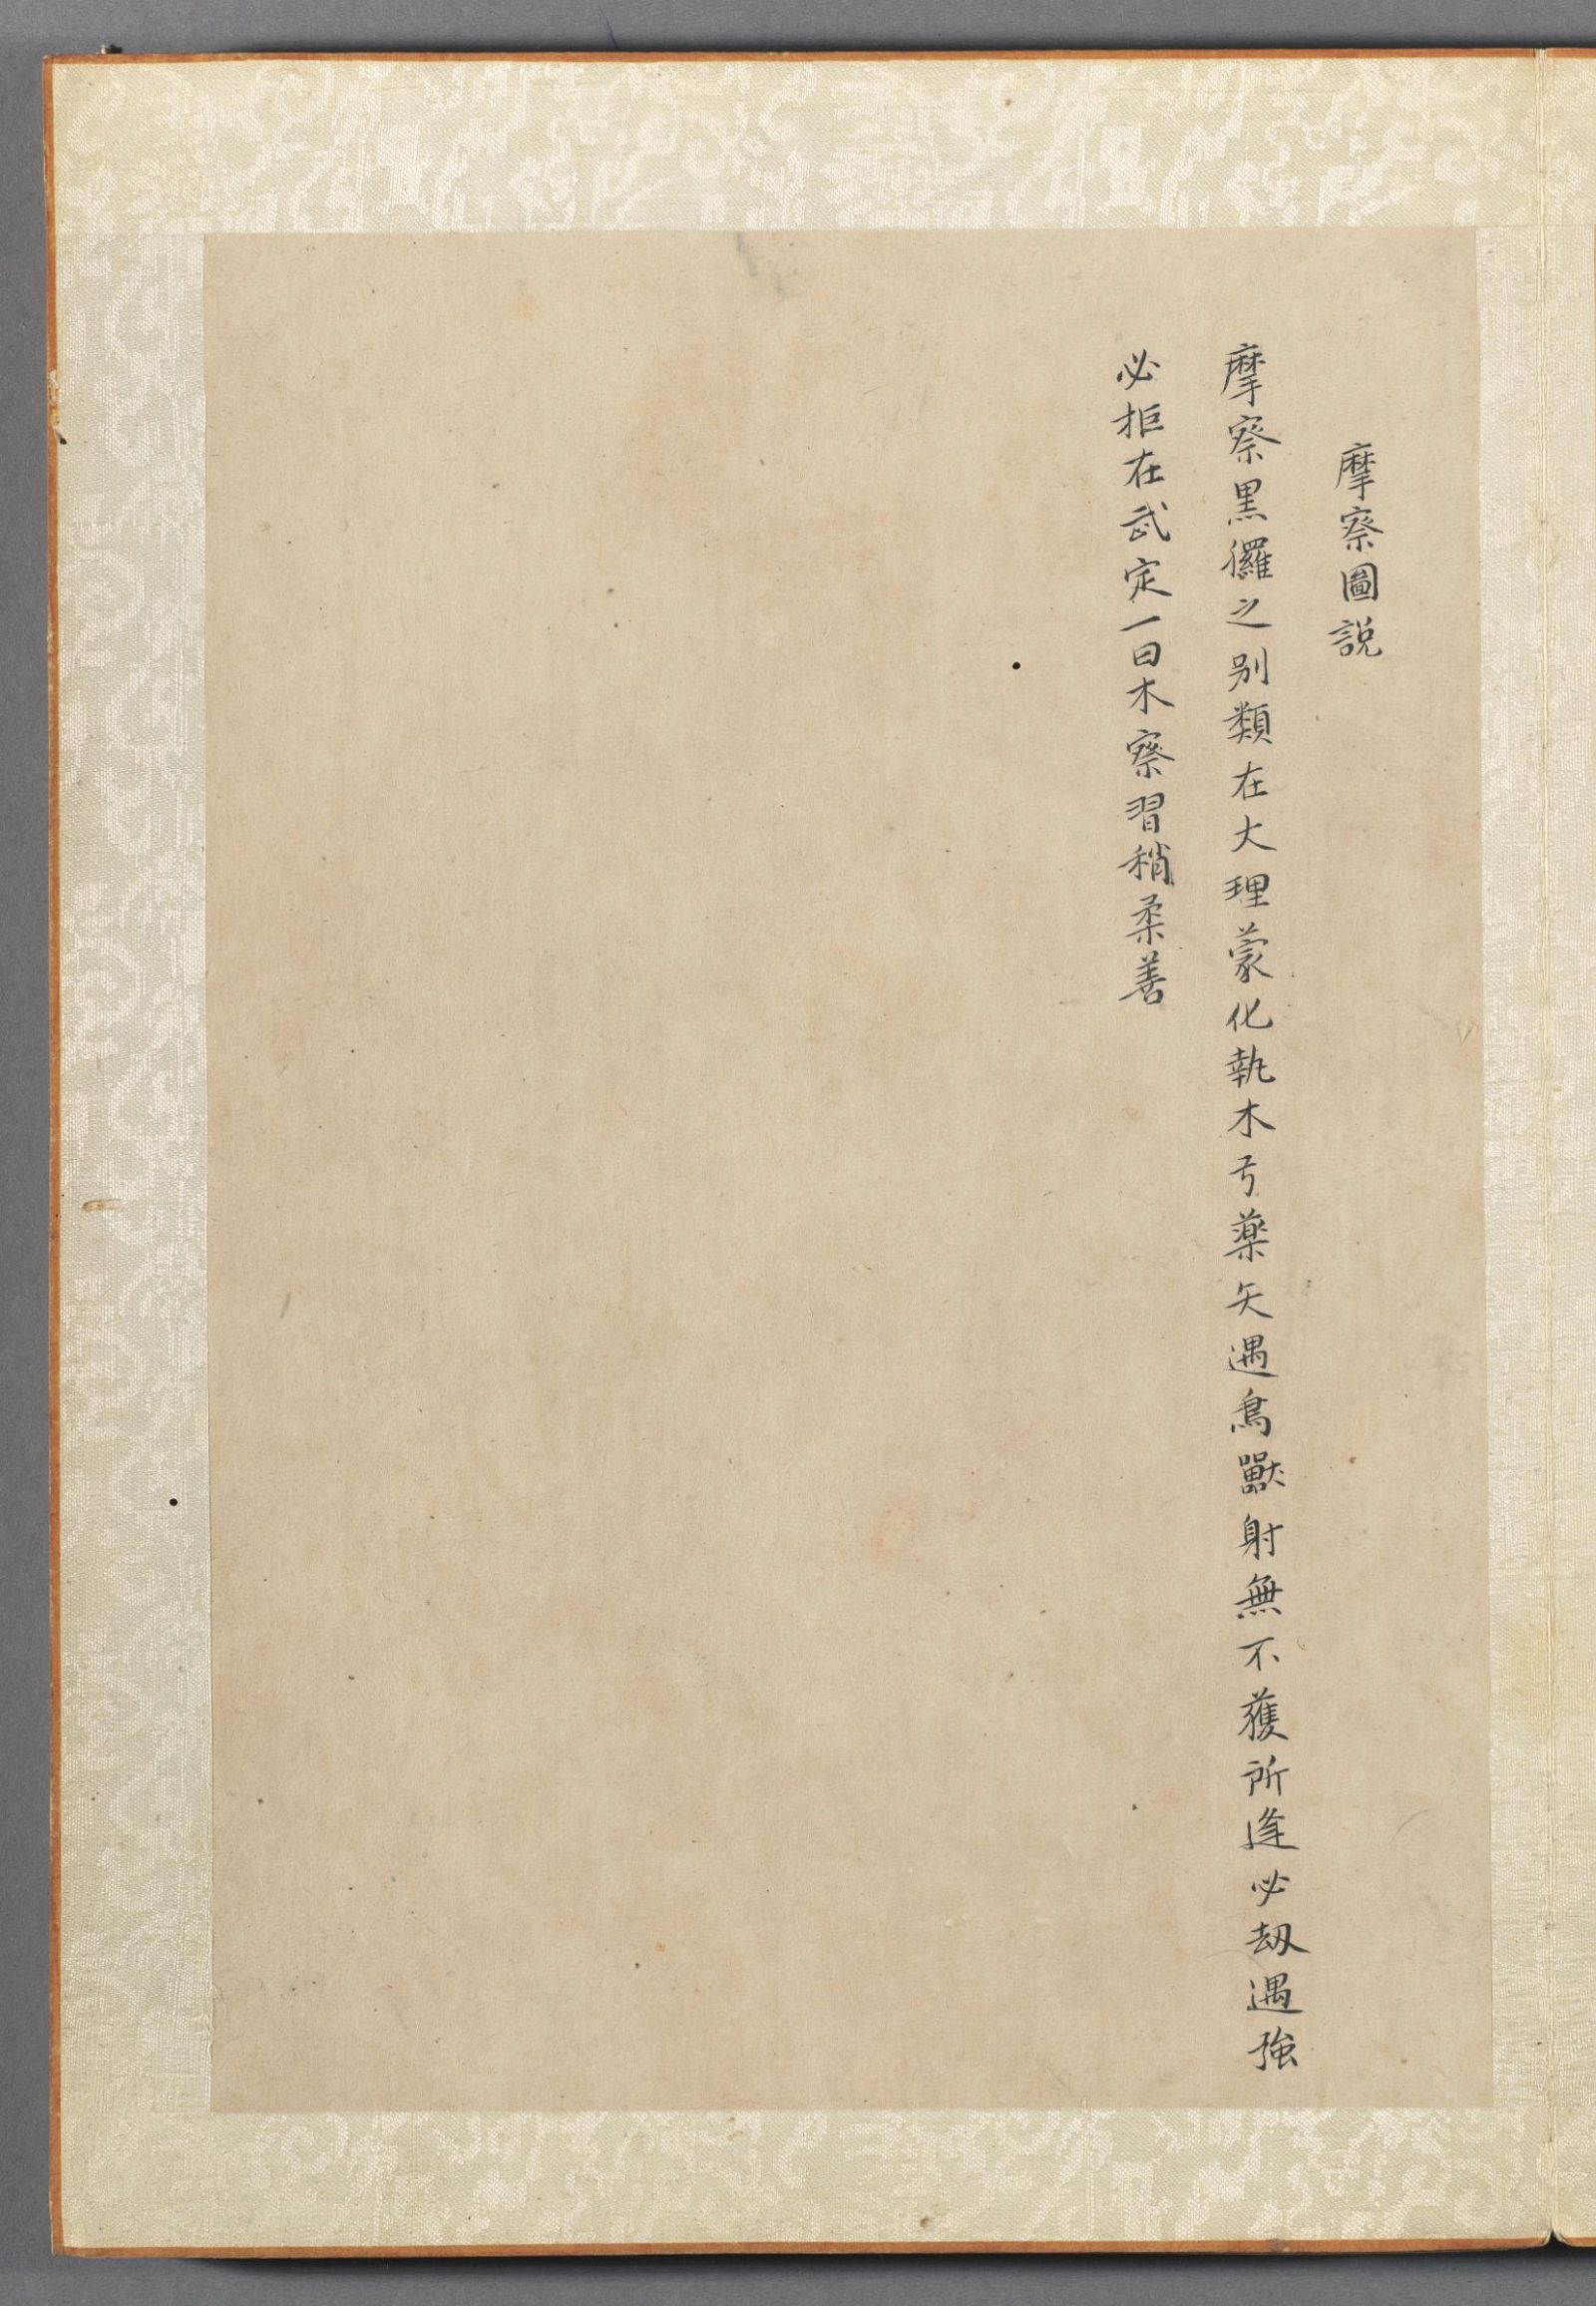 摩察圖説
摩察黒玀之别類在大理蒙化執木弓藥矢遇鳥獸射無不獲所逢必刼遇強
必拒在武定一曰木察習稍柔善